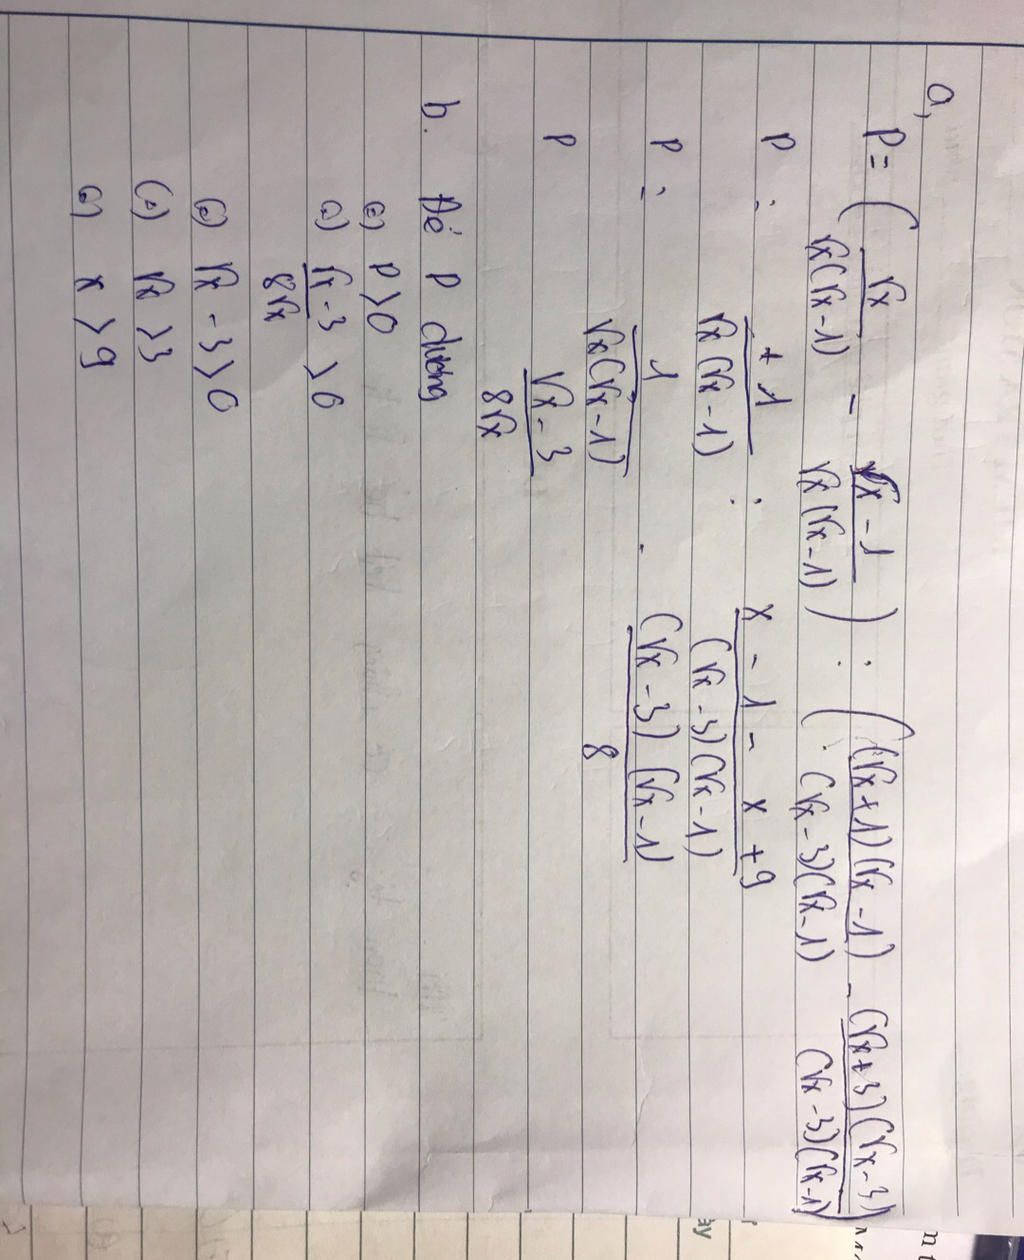 a,
P = ( √x / √x(√x-1) - √x - 1 / √x(√x-1) ) : ( (√x+1)(√x-1) / (√x-3)(√x-1) - (√x+3)(√x-3) / (√x-3)(√x-1) )
P = +1 / √x(√x-1) : x - 1 - x + 9 / (√x-3)(√x-1)
P = 1 / √x(√x-1) . (√x-3)(√x-1) / 8
P √x-3 / 8√x
b. Để P dương
(=) P > 0
(=) √x-3 / 8√x > 0
(=) √x - 3 > 0
(=) √x > 3
(=) x > 9
ay